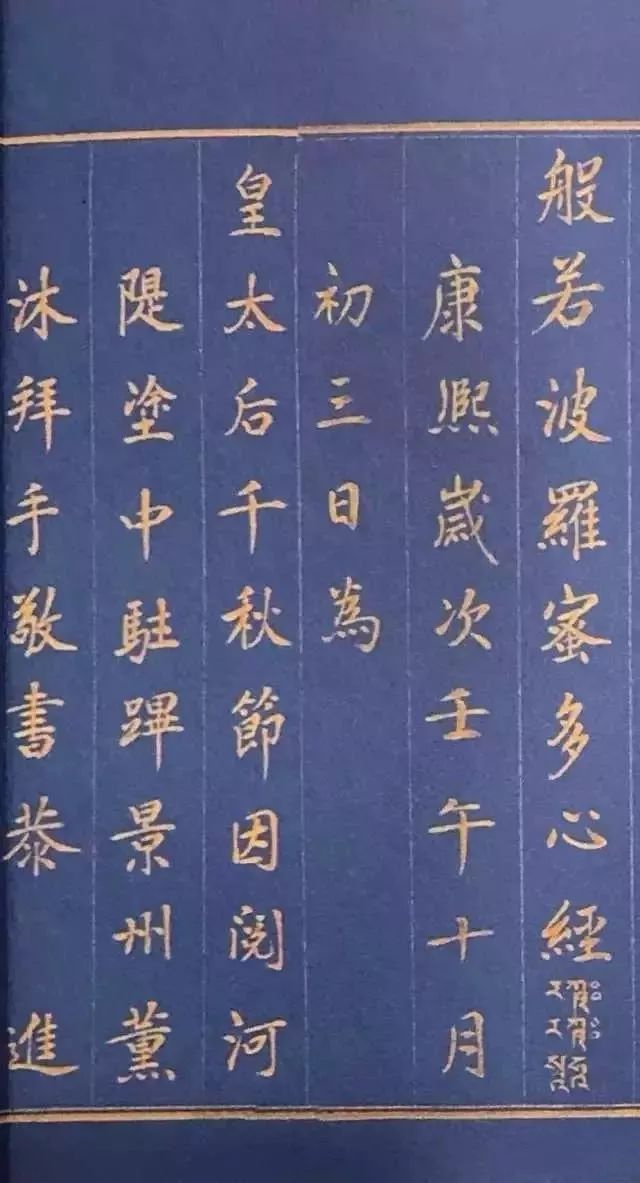 般若波羅蜜多心經
康熙歲次壬午十月
初三日為
皇太后千秋節因閱河
隄塗中駐蹕景州薰
沐拜手敬書恭進